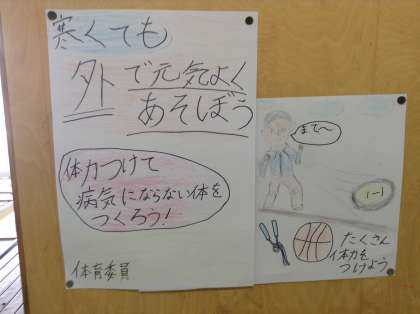 寒くても
外で元気よく
あそぼう
体力つけて
病気にならない体を
つくろう!
体育委員
まて〜
たくさん
体力を
つけよう